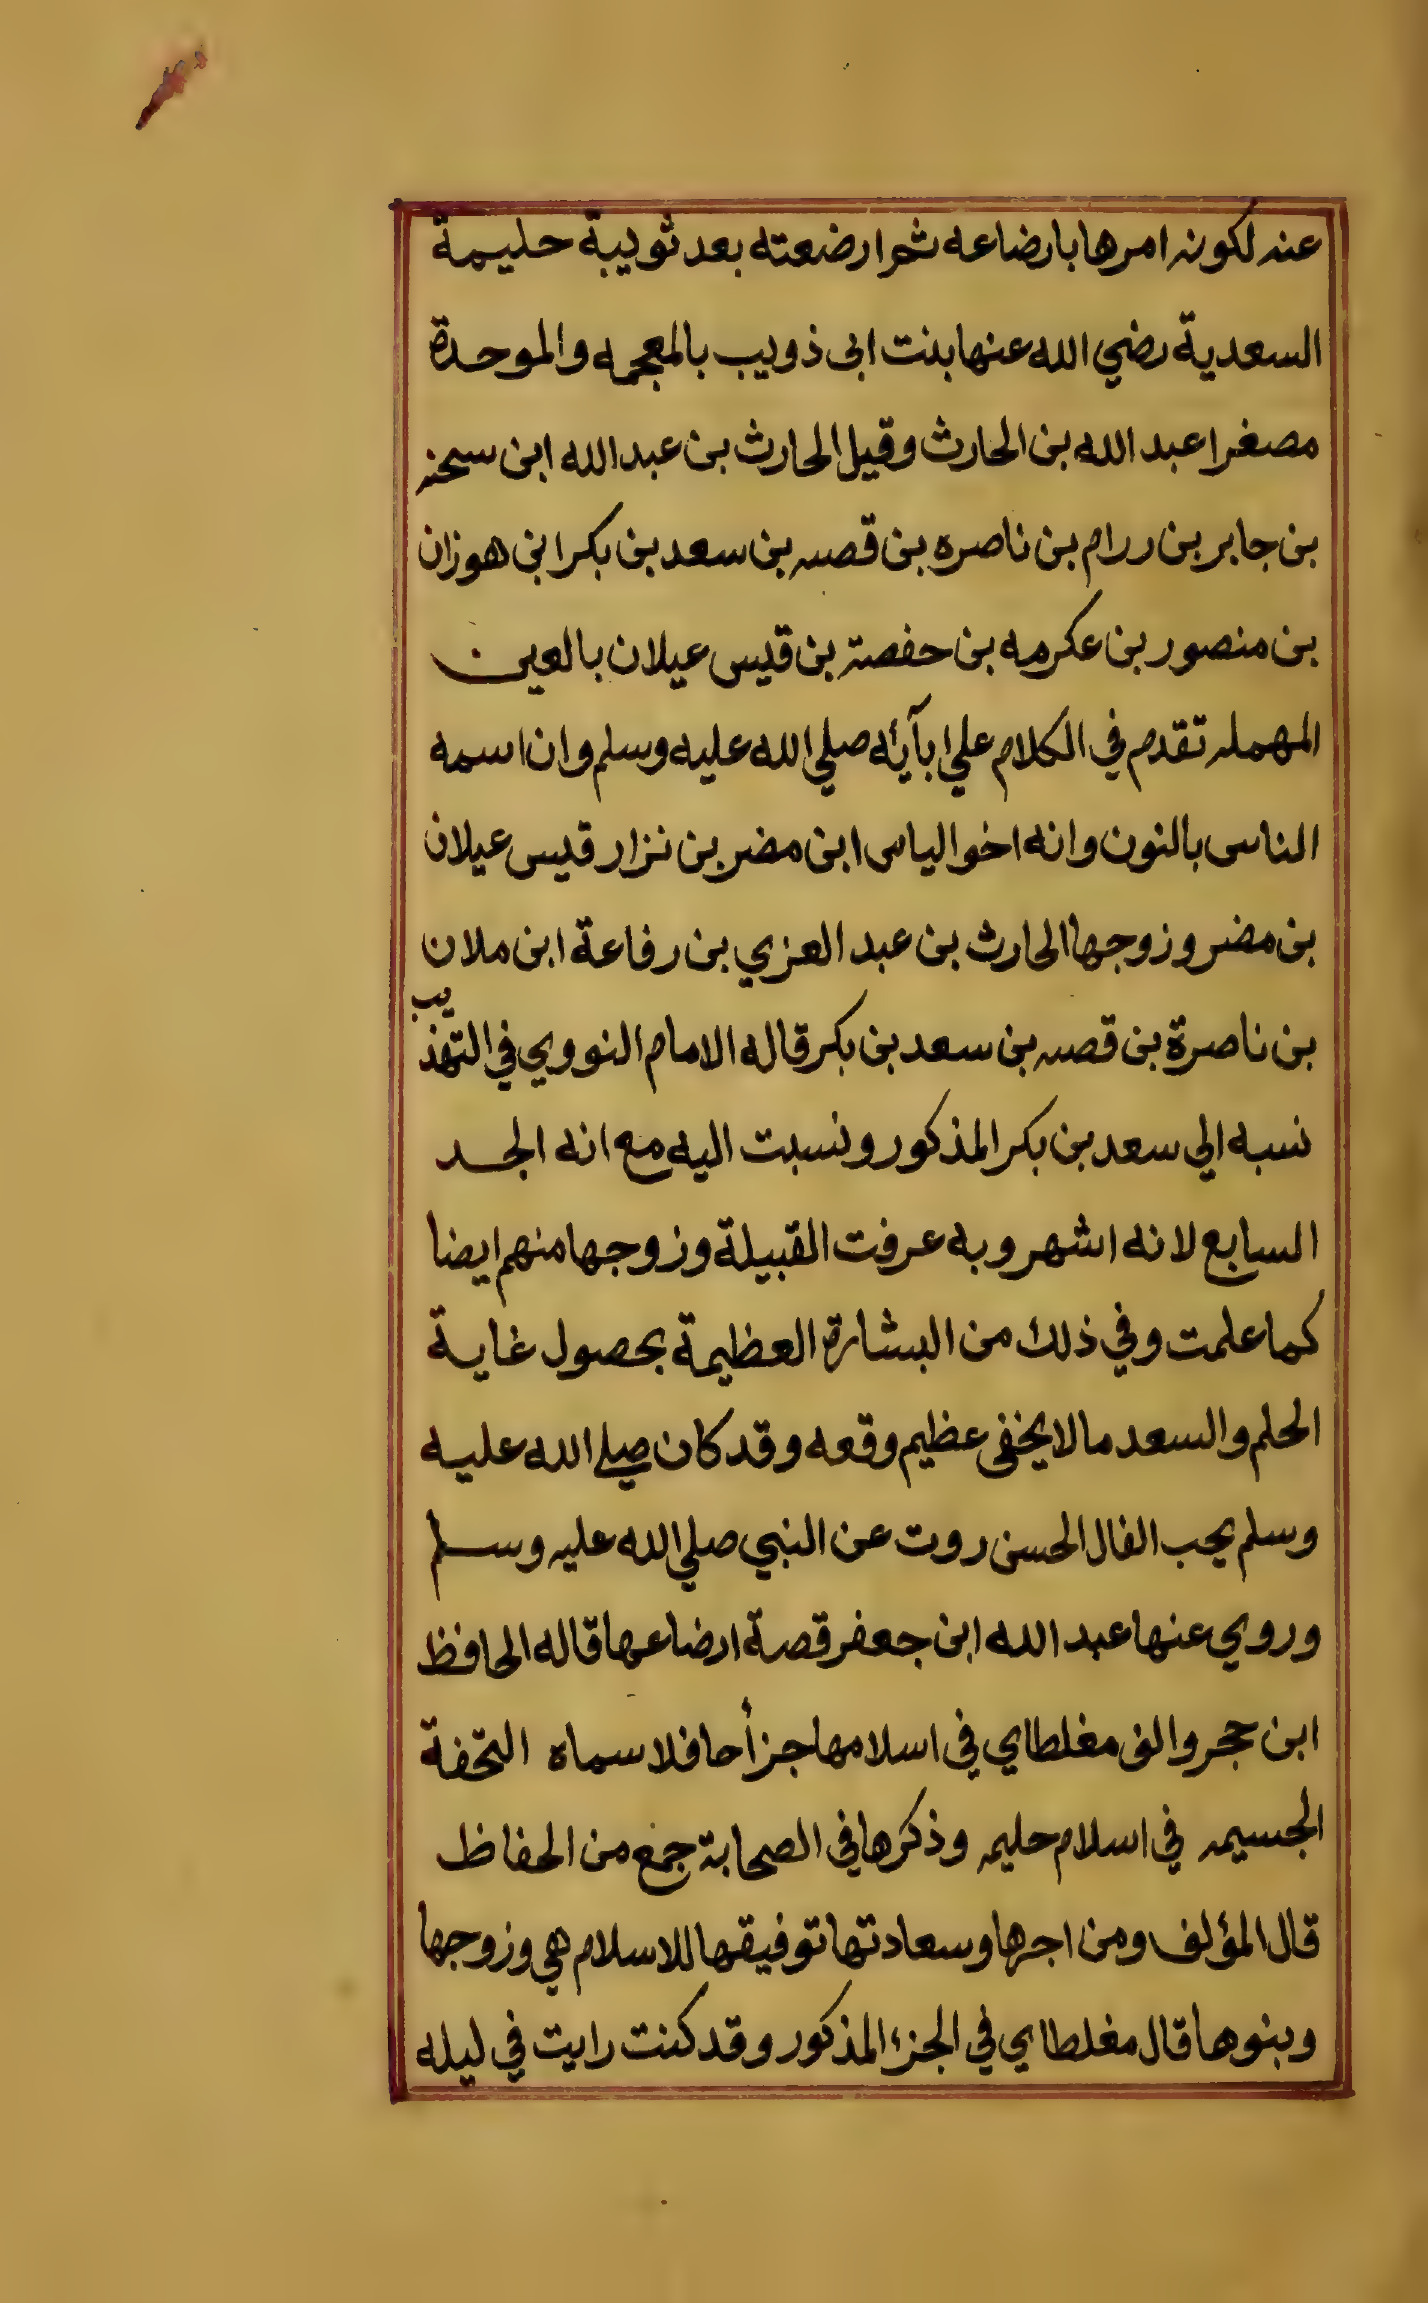 عنه لكونه امرها بارضاعه ثم ارضعته بعد ثويبة حليمة
السعدية رضي الله عنها بنت ابى ذويب بالمعجمه والموحدة
مصغرا عبد الله بن الحارث وقيل الحارث بن عبد الله ابن سحنه
بن جابر بن ررام بن ناصره بن قصيه بن سعد بن بكر ابن هوزان
بن منصور بن عكرمه بن حفصة بن قيس عيلان بالعين
المهمله تقدم في الكلام علي ابآئه صلي الله عليه وسلم وان اسمه
الناس بالنون وانه اخو الياس ابن مضر بن نزار قيس عيلان
بن مضر وزوجها الحارث بن عبد العزي بن رفاعة ابن ملان
بن ناصرة بن قصيه بن سعد بن بكر قاله الامام النووي في التهذيب
نسبه الي سعد بن بكر المذكور ونسبت اليه مع انه الجد
السابع لانه اشهر وبه عرفت القبيلة وزوجها منهم ايضا
كما علمت وفي ذلك من البشارة العظيمة بحصول غاية
الحلم والسعد مالا يخفى عظيم وقعه وقد كان صلي الله عليه
وسلم يحب الفال الحسن روت عن النبي صلي الله عليه وسلم
وروي عنها عبد الله ابن جعفر قصة ارضاعها قاله الحافظ
ابن حجر والف مغلطاي في اسلامها جزأ حافلا سماه التحفة
الجسيمه في اسلام حليمه وذكرها في الصحابة جمع من الحفاظ
قال المؤلف ومن اجرها وسعادتها توفيقها للاسلام هي وزوجها
وبنوها قال مغلطاي في الجزء المذكور وقد كنت رايت في ليله